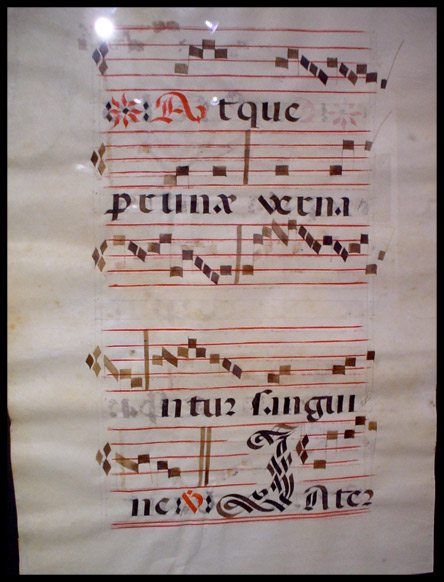 Atque
pruinæ verna
ntur sangui
ne: V: Inter